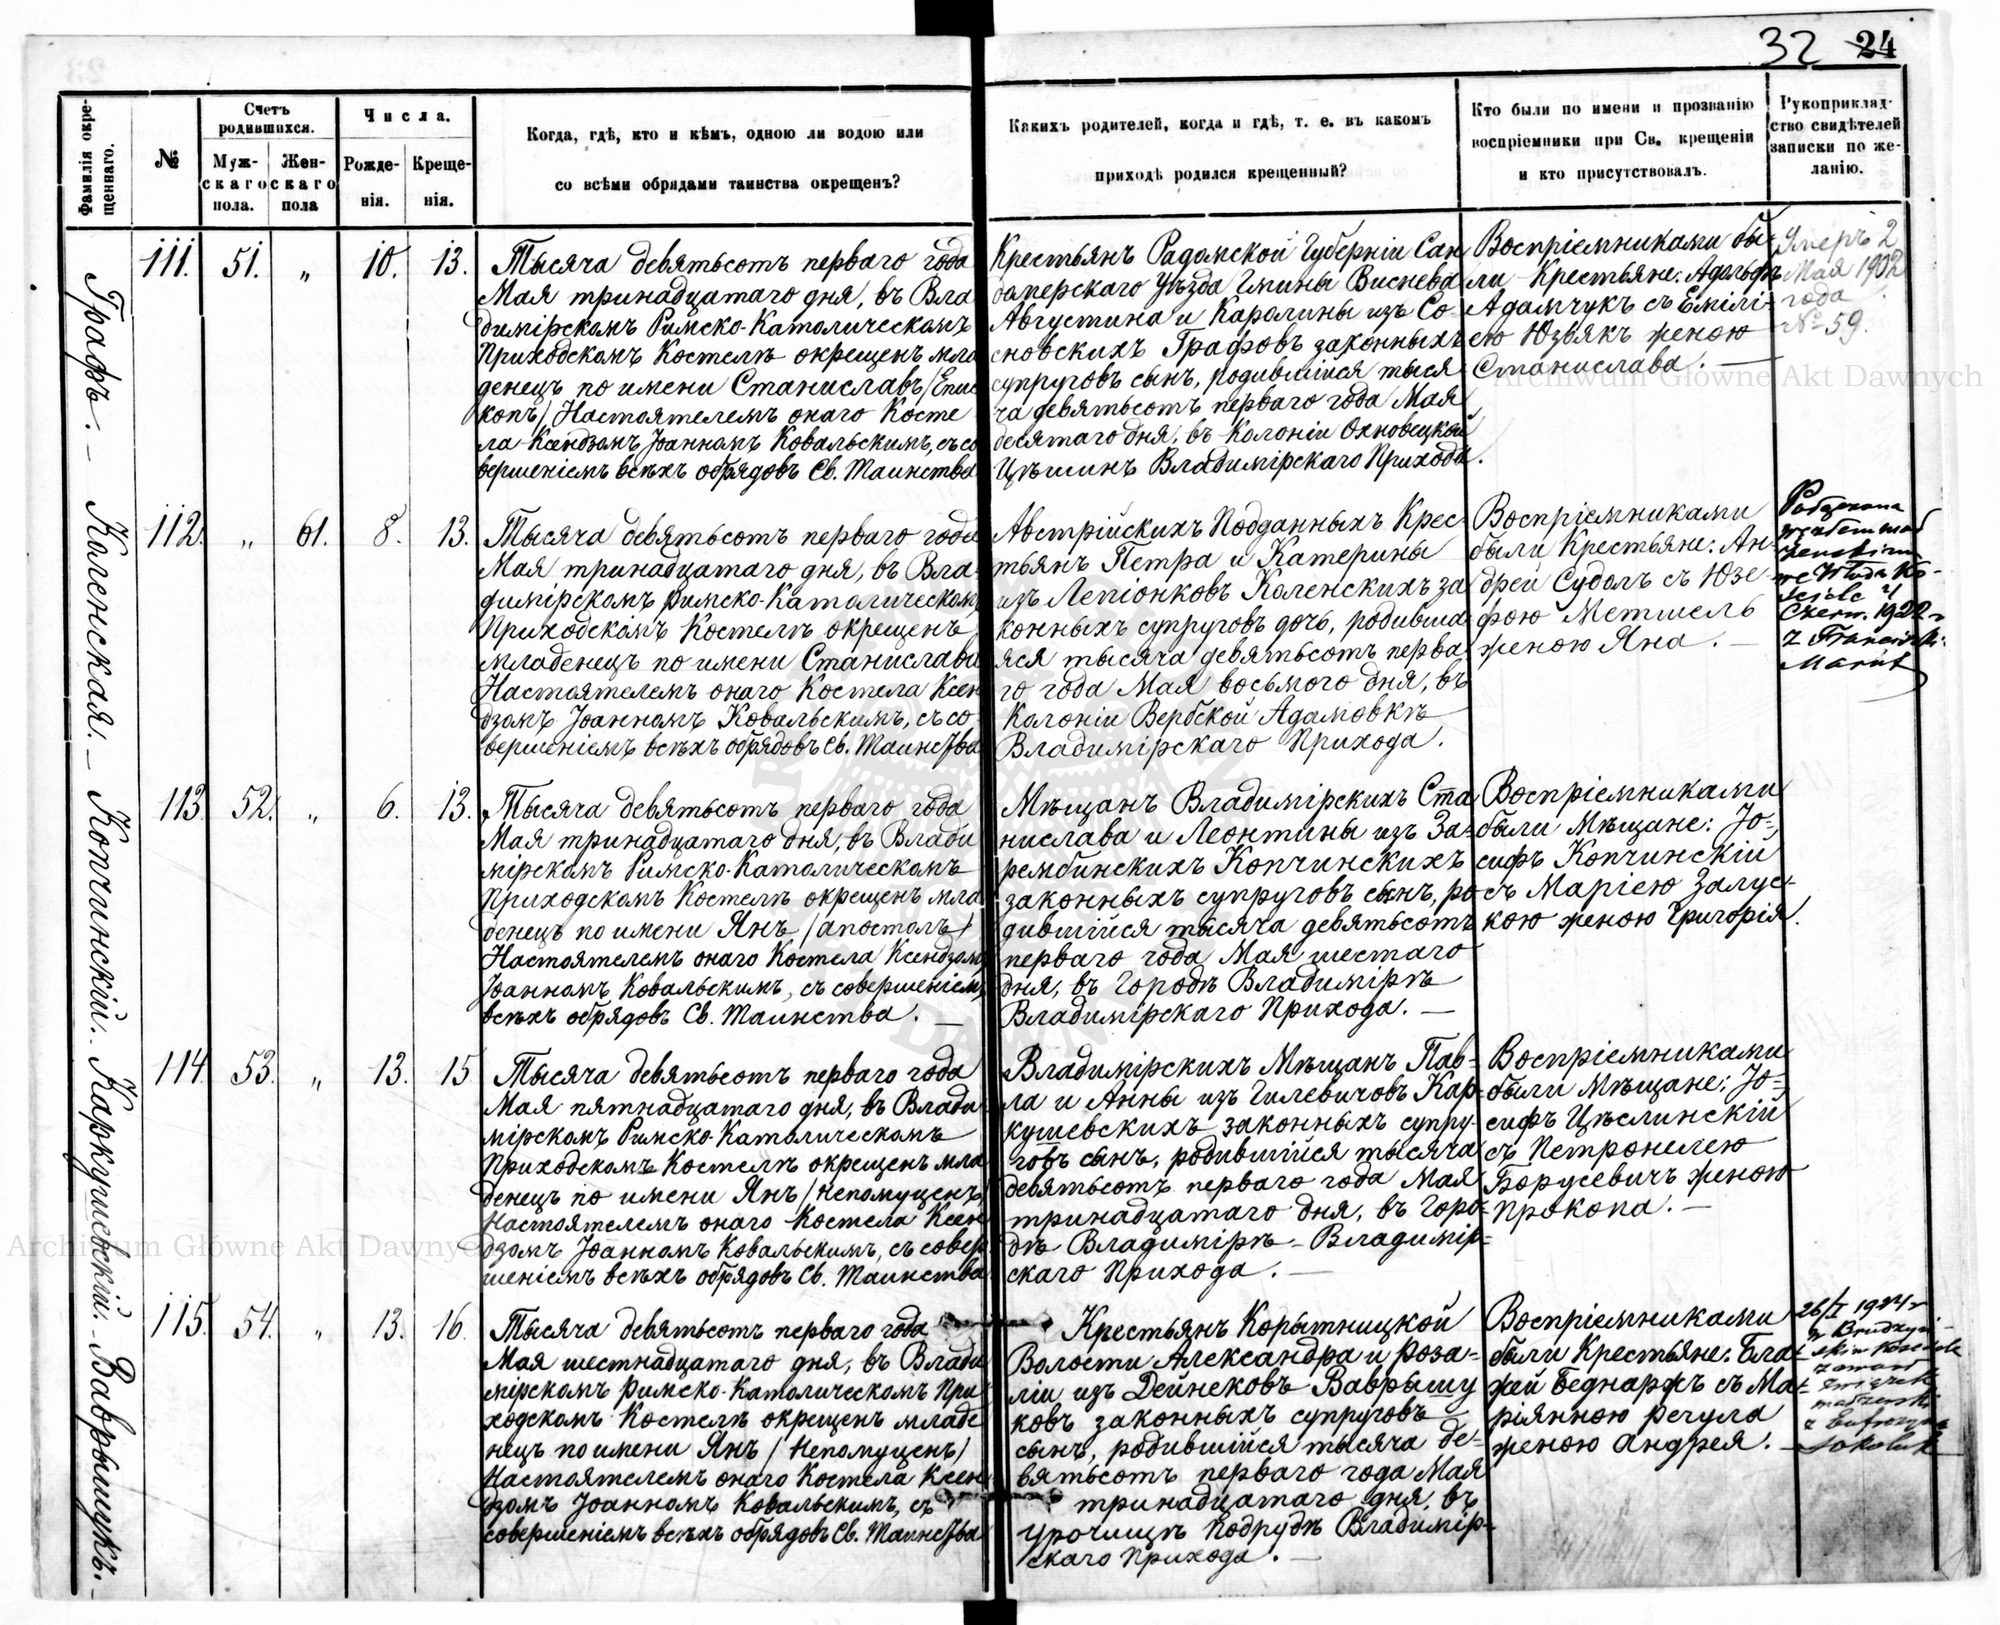 32 24
Фамилія окре-
щеннаго.
№
Счетъ
родившихся.
Муж-
скаго
пола.
Жен-
скаго
пола
Числа.
Рожде-
нія.
Креще-
нія.
Когда, гдѣ, кто и кѣмъ, одною ли водою или
со всѣми обрядами таинства окрещенъ?
Какихъ родителей, когда и гдѣ, т. е. въ какомъ
приходѣ родился крещенный?
Кто были по имени и прозванію
воспріемники при Св. крещеніи
и кто присутствовалъ.
Рукоприклад-
ство свидѣтелей
записки по же-
ланію.
Графъ. –
111. 51. „ 10. 13.
Тысяча девятьсотъ перваго года
Мая тринадцатаго дня, въ Вла
димірскомъ Римско-Католическомъ
Приходскомъ Костелѣ окрещенъ мла
денецъ по имени Станиславъ /Епис
копъ/ Настоятелемъ онаго Косте
ла Ксендзомъ Іоанномъ Ковальскимъ, съ со
вершеніемъ всѣхъ обрядовъ Св. Таинства
Крестьянъ Радомской Губерніи Сан
домерскаго Уѣзда Гмины Виснева
Августина и Каролины изъ Со-
сновскихъ Графовъ законныхъ
супруговъ сынъ, родившійся тыся
ча девятьсотъ перваго года Мая
десятаго дня, въ Колоніи Охновецкой
Цѣшинъ Владимірскаго Прихода.
Воспріемниками бы-
ли Крестьяне: Адольфъ
Адамчукъ съ Емілі-
ею Юзвякъ женою
Станислава. —
Умеръ 2
Мая 1902
года
№ 59.
Коленская. –
112. „ 61. 8. 13.
Тысяча девятьсотъ перваго года
Мая тринадцатаго дня, въ Вла-
димірскомъ Римско-Католическомъ
Приходскомъ Костелѣ окрещенъ
младенецъ по имени Станислава
Настоятелемъ онаго Костела Ксен
дзомъ Іоанномъ Ковальскимъ, съ со
вершеніемъ всѣхъ обрядовъ Св. Таинства
Австрійскихъ Подданныхъ Крес-
тьянъ Петра и Катерины
изъ Лепіонковъ Коленскихъ за
конныхъ супруговъ дочь, родивша
яся тысяча девятьсотъ перва
го года Мая восьмого дня, въ
Колоніи Вербской Адамовкѣ
Владимірскаго Прихода.
Воспріемниками
были Крестьяне: Ан-
дрей Судолъ съ Юзе
фою Метшель
женою Яна. —
Czerw. 1922 r
z Francisz.
Копчинскій.
113 52. „ 6. 13.
Тысяча девятьсотъ перваго года
Мая тринадцатаго дня, въ Влади
мірскомъ Римско-Католическомъ
Приходскомъ Костелѣ окрещенъ мла
денецъ по имени Янъ /апостолъ/
Настоятелемъ онаго Костела Ксендзомъ
Іоанномъ Ковальскимъ, съ совершеніемъ
всѣхъ обрядовъ Св. Таинства. —
Мѣщанъ Владимірскихъ Ста
нислава и Леонтины изъ За-
рембинскихъ Копчинскихъ
законныхъ супруговъ сынъ, ро
дившійся тысяча девятьсотъ
перваго года Мая шестаго
дня, въ Городѣ Владимірѣ
Владимірскаго Прихода. —
Воспріемниками
были Мѣщане: Іо-
сифъ Копчинскій
съ Маріею Залус-
кою женою Григорія.
Каркушевскій. –
114. 53. „ 13. 15
Тысяча девятьсотъ перваго года
Мая пятнадцатаго дня, въ Влади
мірскомъ Римско-Католическомъ
Приходскомъ Костелѣ окрещенъ мла
денецъ по имени Янъ /Непомуценъ/
Настоятелемъ онаго Костела Ксен
дзомъ Іоанномъ Ковальскимъ, съ совер
шеніемъ всѣхъ обрядовъ Св. Таинства
Владимірскихъ Мѣщанъ Пав-
ла и Анны изъ Гилевичовъ Кар-
кушевскихъ законныхъ супру-
говъ сынъ, родившійся тысяча
девятьсотъ перваго года Мая
тринадцатаго дня, въ Горо-
дѣ Владимірѣ - Владимір-
скаго Прихода. —
Воспріемниками
были Мѣщане: Іо-
сифъ Цѣслинскій
съ Петронелею
Борусевичъ женою
Прокопа. —
Ваврышукъ. –
115. 54. „ 13. 16
Тысяча девятьсотъ перваго года
Мая шестнадцатаго дня, въ Влади
мірскомъ Римско-Католическомъ При
ходскомъ Костелѣ окрещенъ младе
нецъ по имени Янъ /Непомуценъ/
Настоятелемъ онаго Костела Ксен
дзомъ Іоанномъ Ковальскимъ, съ
совершеніемъ всѣхъ обрядовъ Св. Таинства
Крестьянъ Корытницкой
Волости Александра и Роза-
ліи изъ Дейнековъ Ваврышу
ковъ законныхъ супруговъ
сынъ, родившійся тысяча де-
вятьсотъ перваго года Мая
тринадцатаго дня, въ
Урочищѣ Подрудѣ Владимір-
скаго Прихода. —
Воспріемниками
были Крестьяне: Бла-
жей Беднаржъ съ Ма-
ріянною Регула
женою Андрея. —
26/I 1924 r
Archiwum Główne Akt Dawnych
Archiwum Główne Akt Dawnych